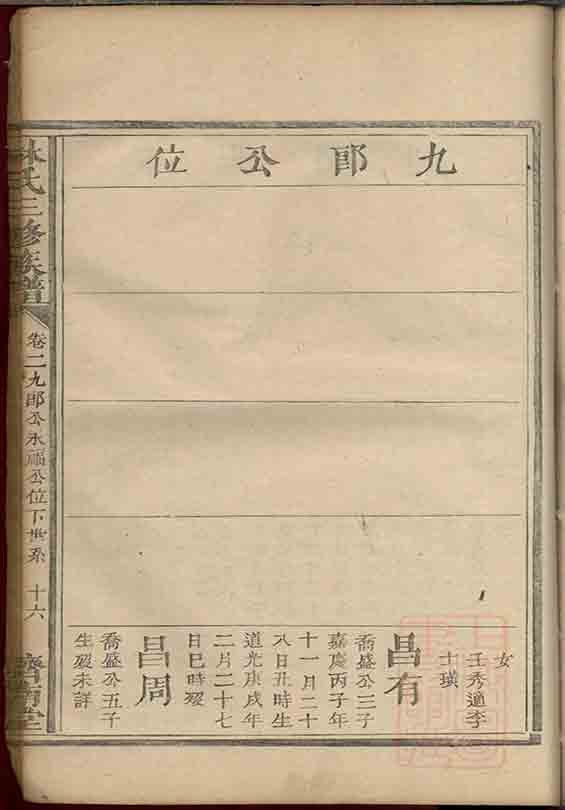 九郎公位
女
壬秀適李
士璜
昌有
喬盛公三子
嘉慶丙子年
十一月二十
八日丑時生
道光庚戌年
二月二十七
日巳時歿
昌周
喬盛公五子
生歿未詳
林氏三修族譜
卷二九郎公永福公位下世系 十六
濟南堂